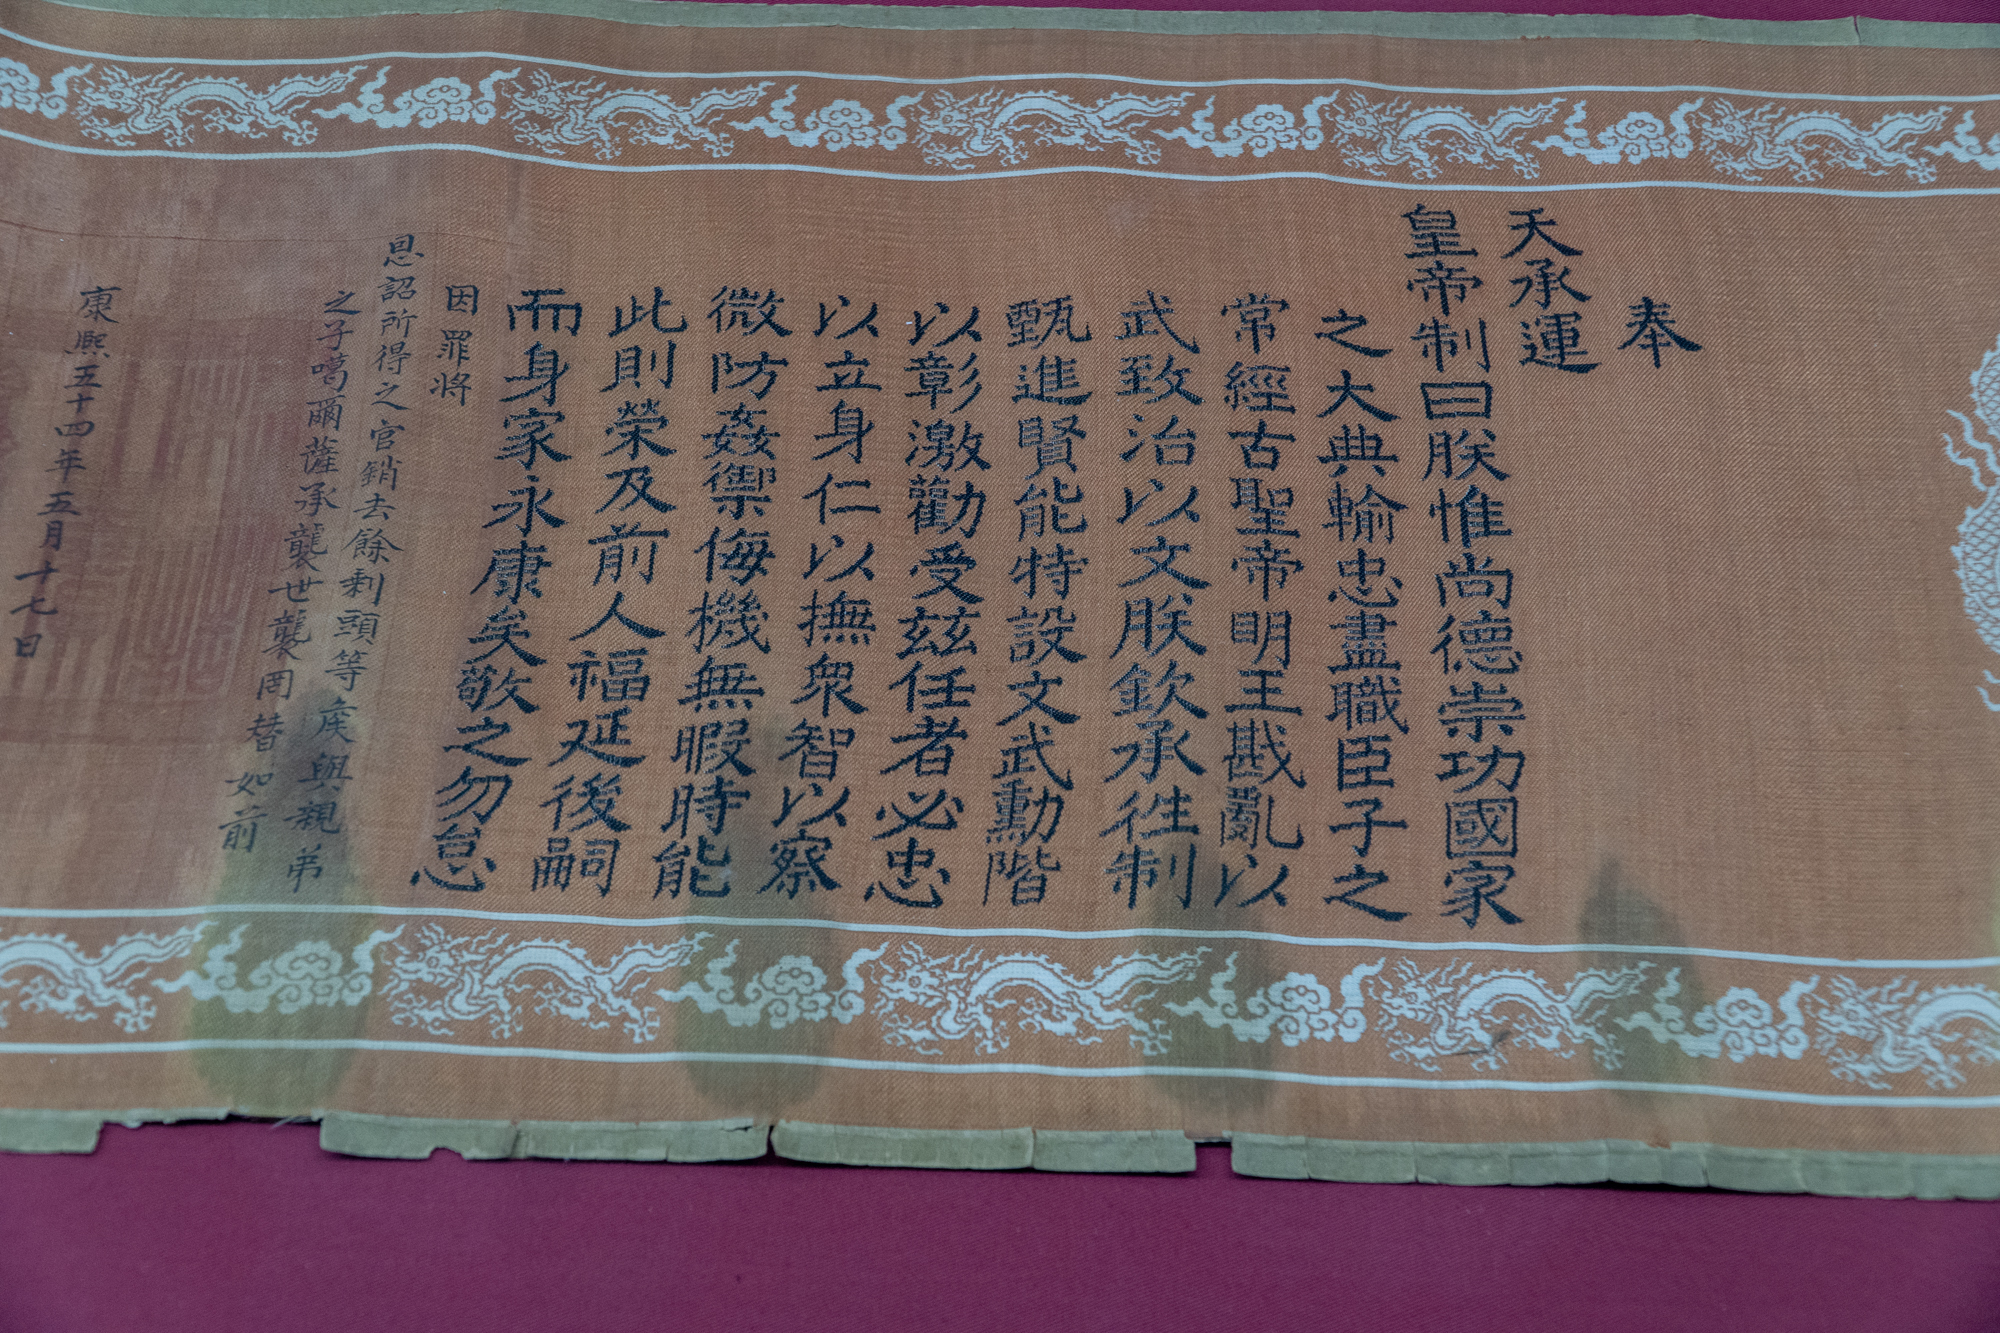 奉
天承運
皇帝制曰朕惟尚德崇功國家
之大典輸忠盡職臣子之
常經古聖帝明王戡亂以
武致治以文朕欽承往制
甄進賢能特設文武勳階
以彰激勸受茲任者必忠
以立身仁以撫衆智以察
微防姦禦侮機無暇時能
此則榮及前人福延後嗣
而身家永康矣敬之勿怠
因罪將
恩詔所得之官銷去餘剩頭等侯與親弟
之子噶爾薩承襲世襲罔替如前
康熙五十四年五月十七日